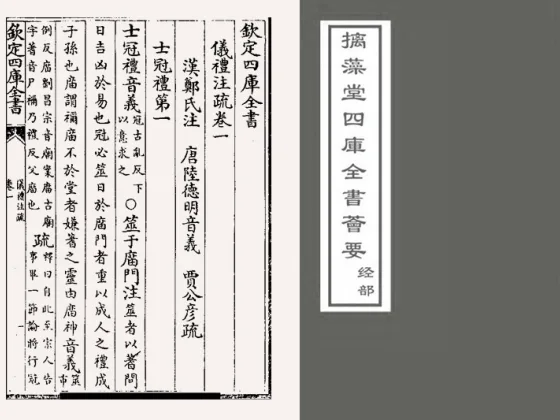 欽定四庫全書
儀禮注疏卷一
漢鄭氏注 唐陸德明音義 賈公彦疏
士冠禮第一
士冠禮音義冠古亂反下以意求之○筮于廟門注筮者以蓍問
日吉凶於易也冠必筮日於廟門者重以成人之禮成
子孫也廟謂禰廟不於堂者嫌蓍之靈由廟神音義筮市
例反廟劉昌宗音廟案廟古廟
字蓍音尸禰乃禮反父廟也
疏釋曰自此至宗人告
事畢一節論將行冠
欽定四庫全書
儀禮注疏
卷一
一
摛藻堂四庫全書薈要
经部